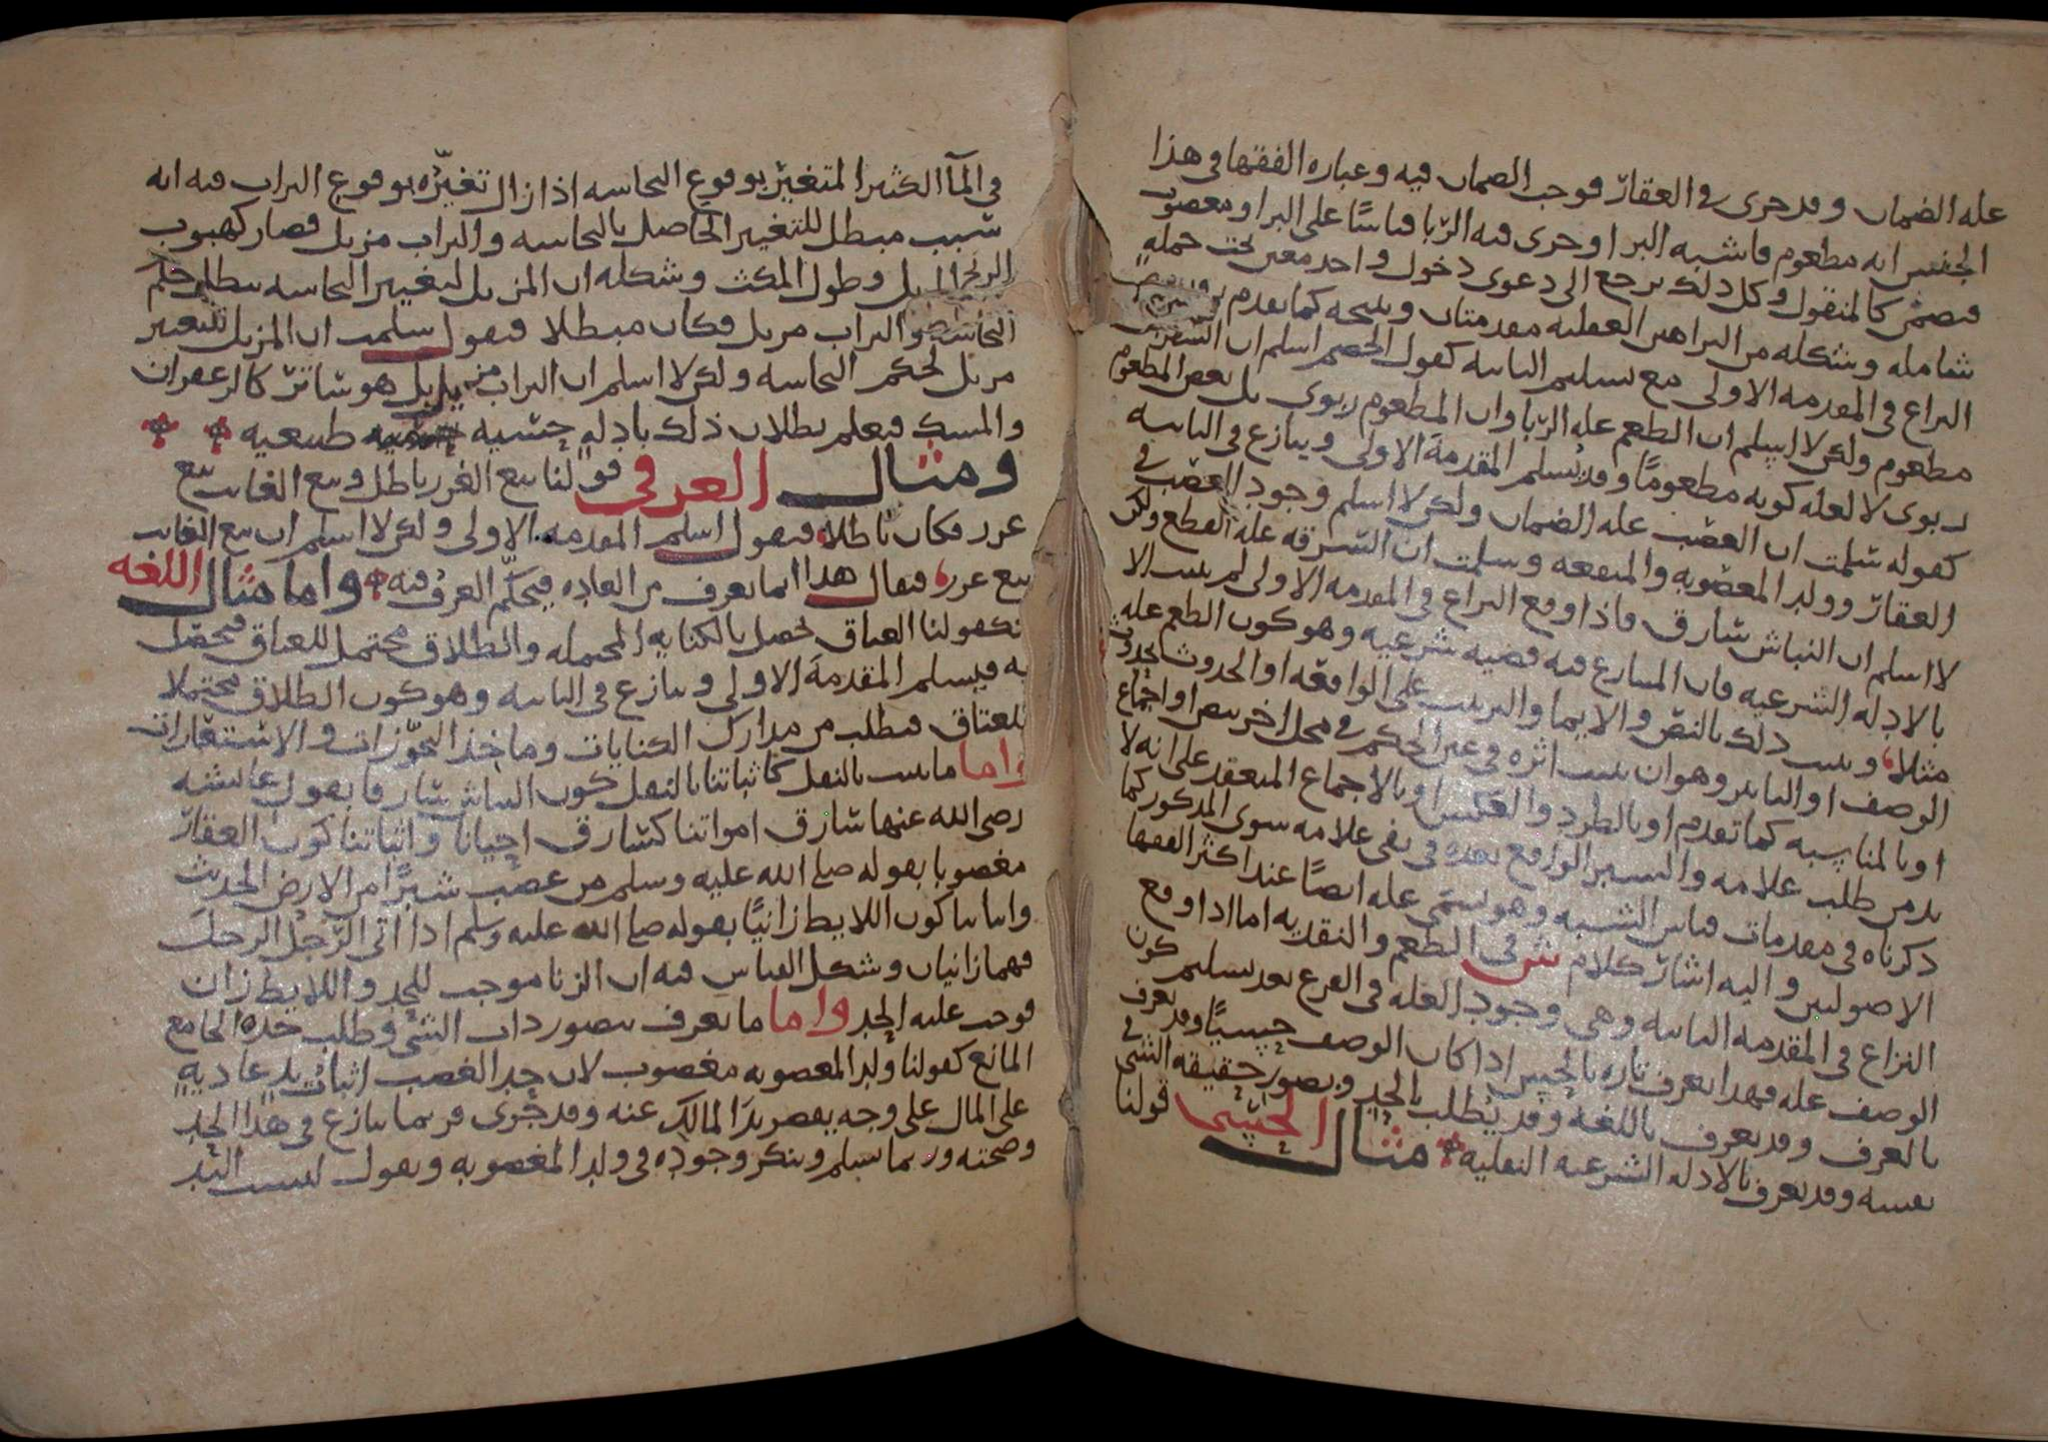 عله الضمان وقد جرى في العقار فوجب الضمان فيه وعباره الفقها في هذا
الجنس انه مطعوم فاشبه البر او جرى فيه الربا قياسًا على البر او مغصوب
فيضمن كالمنقول وكل ذلك يرجع الى دعوى دخول واحد معين تحت جمله
شامله وشكله من البراهين العقليه مقدمتان ونتيجه كما تقدم
النزاع في المقدمه الاولى مع تسليم الثانيه كقول الخصم اسلم ان السفرجل
مطعوم ولكن لا اسلم ان الطعم عله الربا وان المطعوم ربوى بل بعض المطعوم
ربوى لا لعله كونه مطعومًا وقد يُسلم المقدمة الاولى وينازع في الثانيه
كقوله سلمت ان الغصب عله الضمان ولكن لا اسلم وجود الغصب في
العقار وولد المغصوبه والمنفعه وسلمت ان السرقه عله القطع ولكن
لا اسلم ان النباش سارق فاذا وقع النزاع في المقدمه الاولى لم يثبت الا
بالادله الشرعيه فان المتنازع فيه قضيه شرعيه وهو كون الطعم عله
مثلا وثبت ذلك بالنص والايما والترتيب على الواقعه او الحدوث بحدوث
الوصف او التاثير وهو ان يثبت اثره في عين الحكم في محل اخر بنص او اجماع
او بالمناسبه كما تقدم او بالطرد والعكس او بالاجماع المنعقد على انه لا
بد من طلب علامه والسبر الواقع بعده في نفى علامه سوى المذكور كما
ذكرناه في مقدمات قياس الشبه وهو يسمى عله ايضًا عند اكثر الفقها
الاصوليين واليه اشار كلام ش في الطعم والنقديه اما اذا وقع
النزاع في المقدمه الثانيه وهى وجود العله في الفرع بعد تسليم كون
الوصف عله فهذا يعرف تاره بالحس اذا كان الوصف حسيًا وقد يعرف
بالعرف وقد يعرف باللغه وقد يُطلب بالحد وتصور حقيقه الشى في
نفسه وقد يعرف بالادله الشرعيه النقليه مثال الحسي قولنا
في المآ الكثير المتغير بوقوع النجاسه اذا زال تغيّره بوقوع التراب فيه انه
سبب مبطل للتغير الحاصل بالنجاسه والتراب مزيل فصار كهبوب
الريح وطول المكث وشكله ان المزيل لتغير النجاسه مبطل حكم
النجاسه والتراب مزيل فكان مبطلا فيقول سلمت ان المزيل للتغير
مزيل لحكم النجاسه ولكن لا اسلم ان التراب مزيل بل هو ساتر كالزعفران
والمسك فيعلم بطلان ذلك بادله حسيه طبيعيه
ومثال العرفي قولنا بيع الغرر باطل وبيع الغايب بيع
غرر فكان باطلا فيقول اسلم المقدمه الاولى ولكن لا اسلم ان بيع الغايب
بيع غرر فيقال هذا انما يعرف من العاده فيحكّم العرف فيه واما مثال اللغه
فكقولنا العتاق تحصل بالكنايه المحتمله والطلاق محتمل للعتاق فيحصل
به فيسلم المقدمة الاولى وينازع في الثانيه وهو كون الطلاق محتملا
للعتاق فيطلب من مدارك الكنايات وماخذ التجوّزات والاستعارات
واما ما يثبت بالنقل كاثباتنا بالنقل كون النباش سارقا بقول عائشه
رضى الله عنها سارق امواتنا كسارق احيانا واثباتنا كون العقار
مغصوبا بقوله صلى الله عليه وسلم من غصب شبرًا من الارض الحديث
واثباتنا كون اللايط زانيًا بقوله صلى الله عليه وسلم اذا اتى الرّجُل الرجلَ
فهما زانيان وشكل القياس فيه ان الزنا موجب للحد واللايط زان
فوجب عليه الحد واما ما يعرف بتصور ذات الشى وطلب حده الجامع
المانع كقولنا ولد المغصوبه مغصوب لان حد الغصب اثبات يد عاديه
على المال على وجه يقصر يدَ المالك عنه وقد جرى فربما ينازع في هذا الحد
وصحته وربما يسلم وينكر وجوده في ولد المغصوبه ويقول ليست اليد